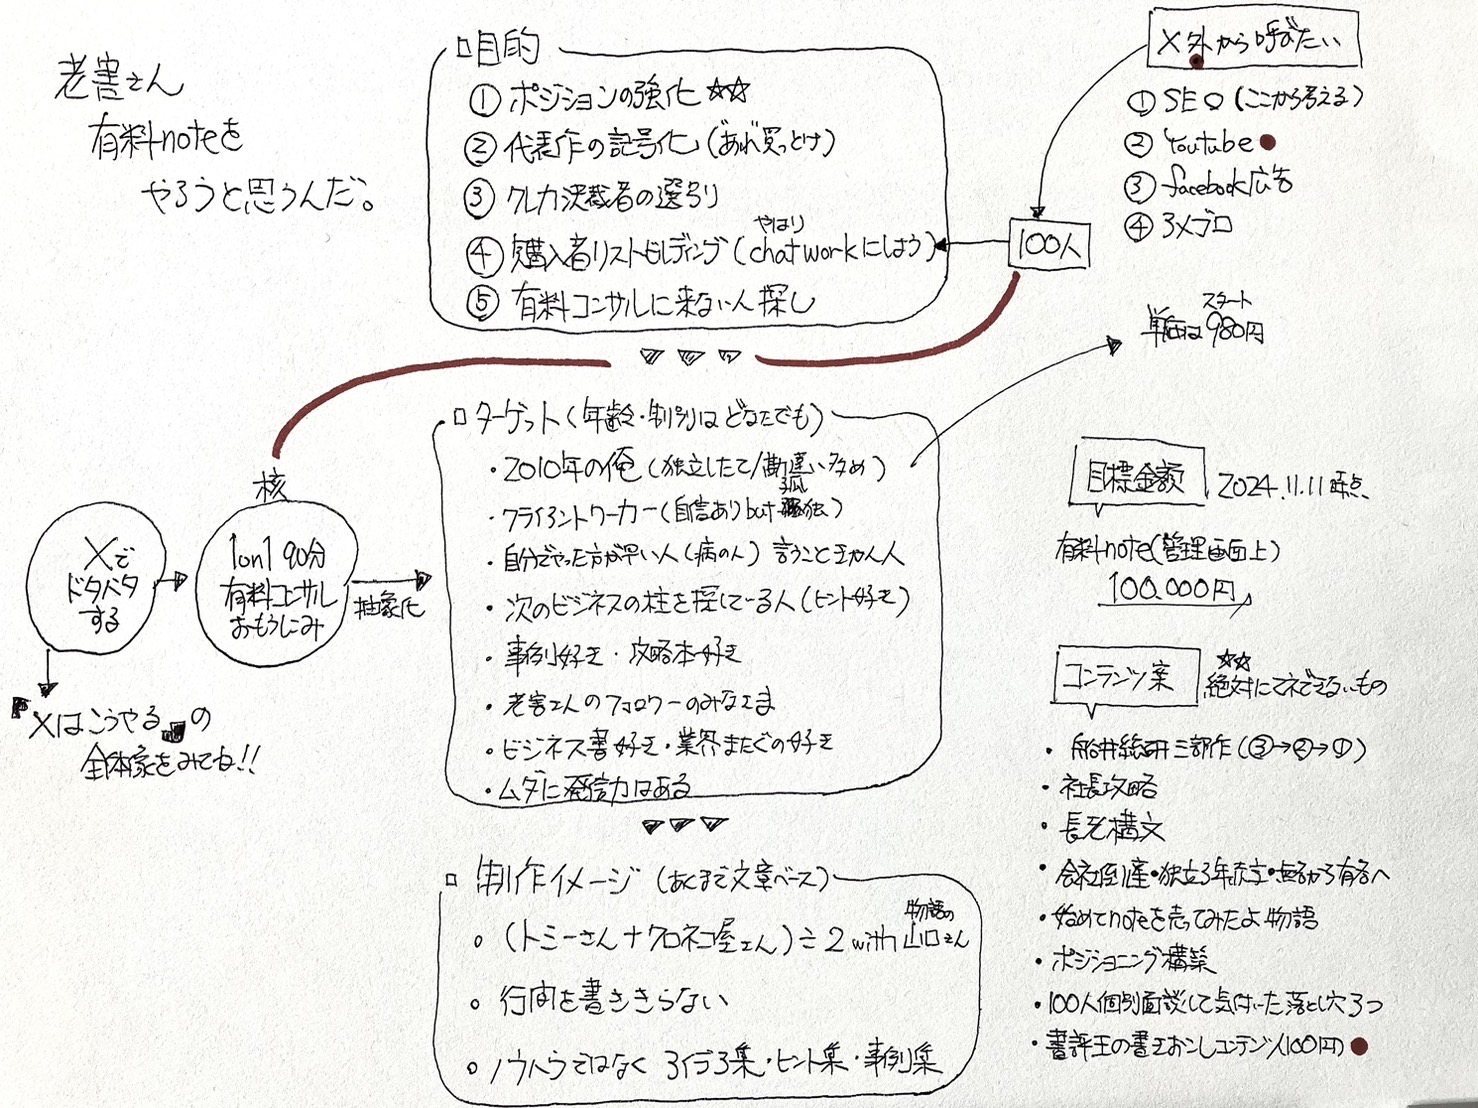 老害さん
有料noteを
やろうと思うんだ。
目的
① ポジションの強化 ☆☆
② 代表作の記号化(あれ買っとけ)
③ クレカ決裁者の選別
④ 購入者リストビルディング(やはりchatworkにしよう)
⑤ 有料コンサルに来ない人探し
X外から呼びたい
① SEO(ここから考える)
② Youtube
③ facebook広告
④ 3メプロ
100人
単価はスタート980円
ターゲット(年齢・制別はどなたでも)
・2010年の俺(独立したて/勘違い多め)
・クライアントワーカー(自信ありbut孤独)
・自分でやった方が早い人(病の人)言うこときかん人
・次のビジネスの柱を探している人(ヒント好き)
・事例好き・攻略本好き
・老害さんのフォロワーのみなさま
・ビジネス書好き・業界またぎの好き
・ムダに発信力はある
核
Xで
ドタバタ
する
1on1 90分
有料コンサル
おもうしこみ
抽象化
『Xはこうやる』の
全体象をみてね!!
制作イメージ(あくまで文章ベース)
○(トミーさん+クロネコ屋さん)÷2 with 物語の山口さん
○ 行間を書ききらない
○ ノウハウではなく ネイタラ集・ヒント集・事例集
目標金額 2024.11.11時点
有料note(管理画面上)
100.000円
コンテンツ案 ☆☆絶対にマネできないもの
・船井総研三部作(③→②→①)
・社長攻略
・長老構文
・会社倒産・独立3年赤字・無名から有名へ
・始めてnoteを売ってみたよ物語
・ポジショニング構築
・100人個別面談して気付いた落とし穴3つ
・書評王の書きおろしコンテンツ(100円)